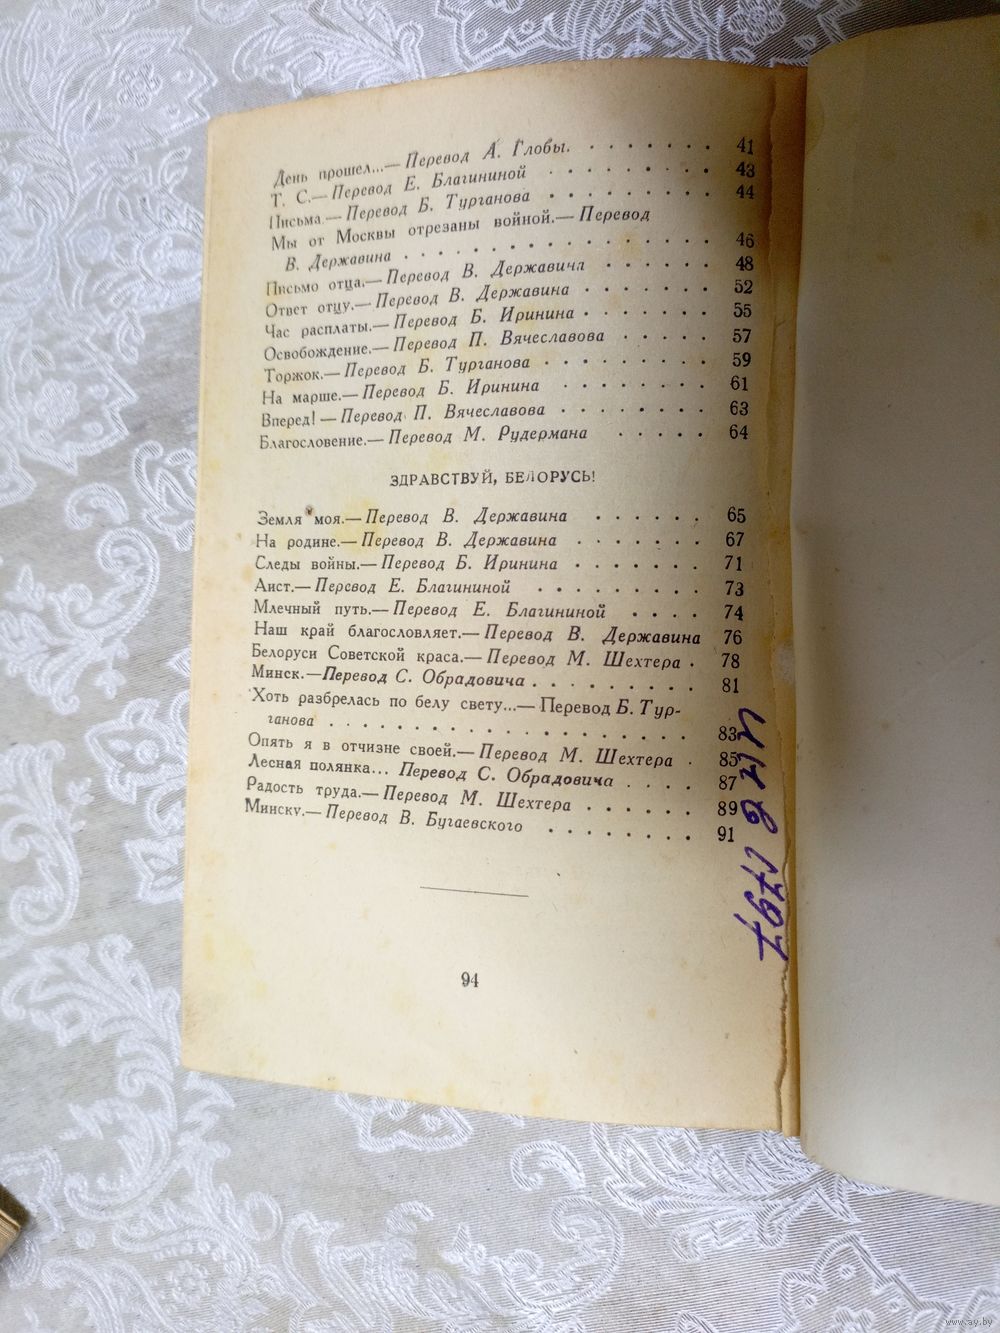 День прошел...— Перевод А. Глобы. . . . . . . . 41
Т. С.— Перевод Е. Благининой . . . . . . . . 43
Письма.— Перевод Б. Турганова . . . . . . . . 44
Мы от Москвы отрезаны войной.— Перевод
В. Державина . . . . . . . . . . . . . . 46
Письмо отца.— Перевод В. Державина . . . . . . 48
Ответ отцу.— Перевод В. Державина . . . . . . 52
Час расплаты.— Перевод Б. Иринина . . . . . . . 55
Освобождение.— Перевод П. Вячеславова . . . . . 57
Торжок.— Перевод Б. Турганова . . . . . . . . 59
На марше.— Перевод Б. Иринина . . . . . . . 61
Вперед! — Перевод П. Вячеславова . . . . . . . 63
Благословение.— Перевод М. Рудермана . . . . . 64
ЗДРАВСТВУЙ, БЕЛОРУСЬ!
Земля моя.— Перевод В. Державина . . . . . . 65
На родине.— Перевод В. Державина . . . . . . . 67
Следы войны.— Перевод Б. Иринина . . . . . . . 71
Аист.— Перевод Е. Благининой . . . . . . . . . 73
Млечный путь.— Перевод Е. Благининой . . . . 74
Наш край благословляет.— Перевод В. Державина 76
Белоруси Советской краса.— Перевод М. Шехтера . 78
Минск.—Перевод С. Обрадовича . . . . . . . . . 81
Хоть разбрелась по белу свету...— Перевод Б. Тур-
ганова . . . . . . . . . . . . . . . . . . 83
Опять я в отчизне своей.— Перевод М. Шехтера . 85
Лесная полянка... Перевод С. Обрадовича . . . . 87
Радость труда.— Перевод М. Шехтера . . . . . . 89
Минску.— Перевод В. Бугаевского . . . . . . . . 91
94
www.ay.by